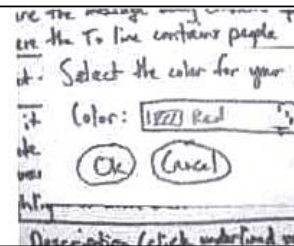 the message
the To line contains people
Select the color for your
it
Color: Red
OK Cancel
Description (click underlined